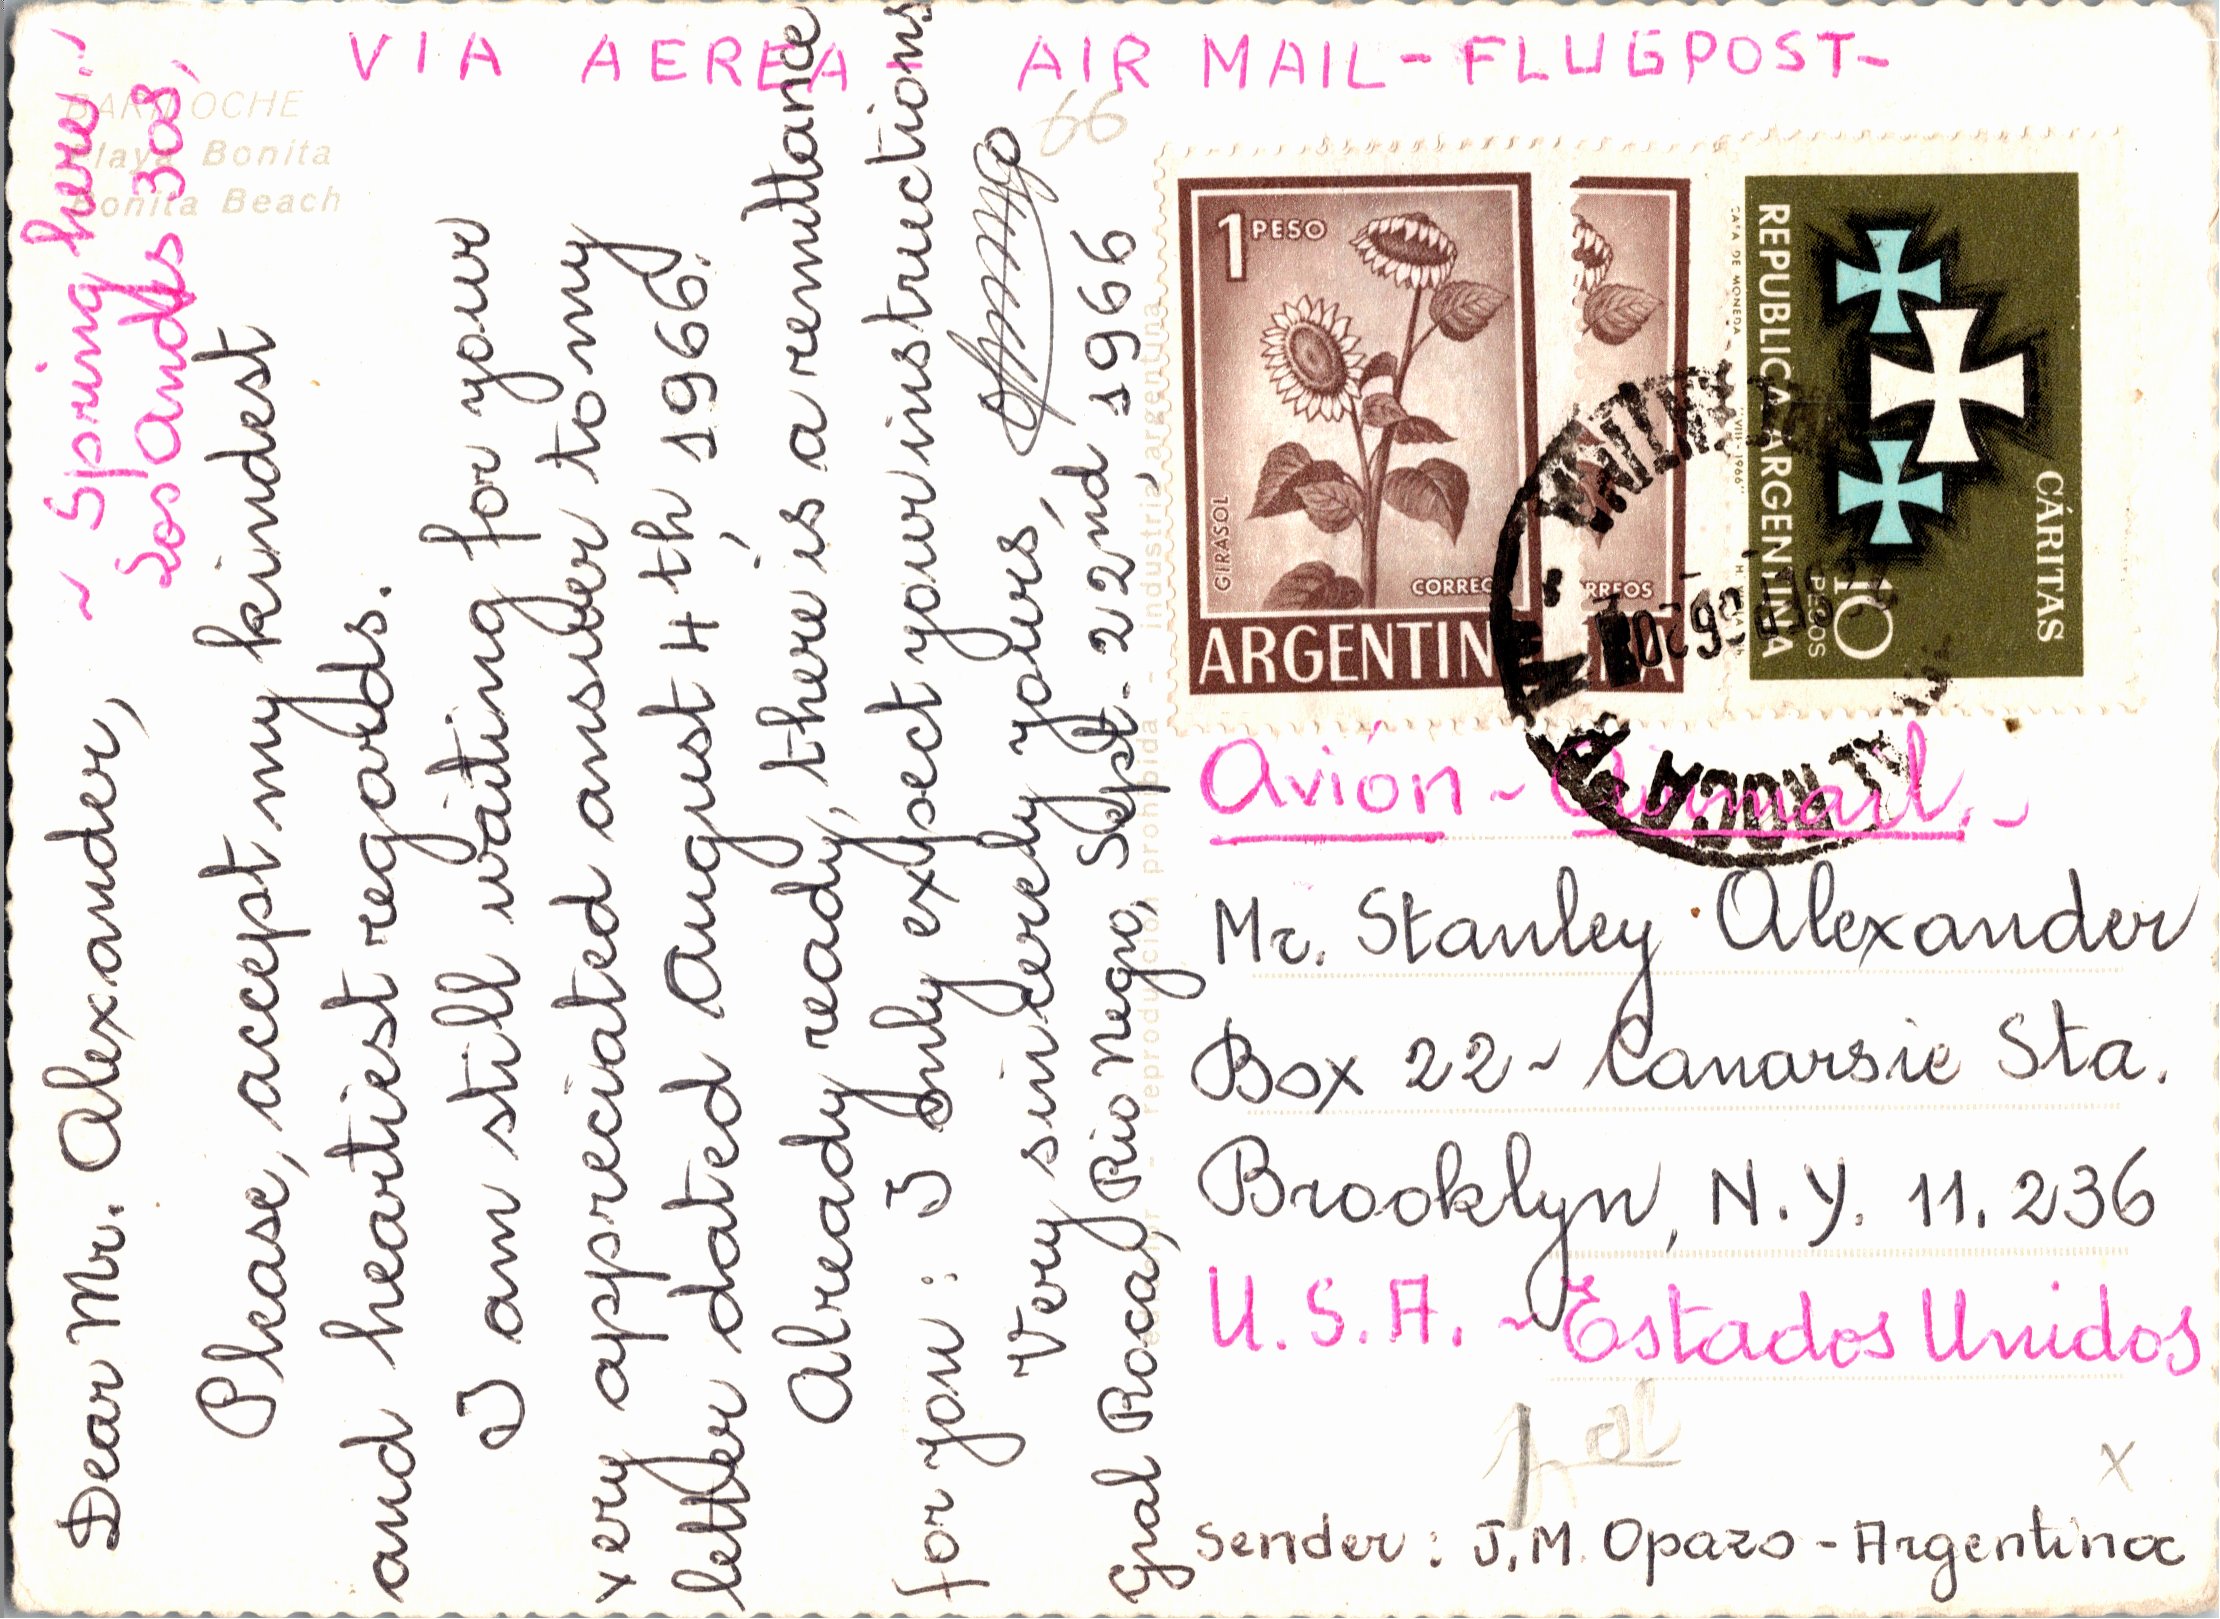 VIA AEREA - AIR MAIL - FLUGPOST -
BARILOCHE
Playa Bonita
Bonita Beach
66
~ Spring here..
Dear Mr. Alexander,
Please, accept my kindest
and heartiest regards.
I am still waiting for your
very appreciated answer to my
letter dated August 4th, 1966.
Already ready, there is a remittance
for you: I only expect your instructions
Very sincerely yours,
Gral Roca, Rio Negro, Sept. 22nd, 1966
reproducción prohibida - industria argentina
1 PESO
GIRASOL
CORREOS
ARGENTINA
RREOS
REPUBLICA ARGENTINA
10
PESOS
CÁRITAS
CASA DE MONEDA
1966
Avión ~ Airmail. ~
Mr. Stanley Alexander
Box 22 ~ Canarsie Sta.
Brooklyn, N.Y. 11.236
U.S.A. ~ Estados Unidos
x
Sender: J.M. Opazo - Argentina